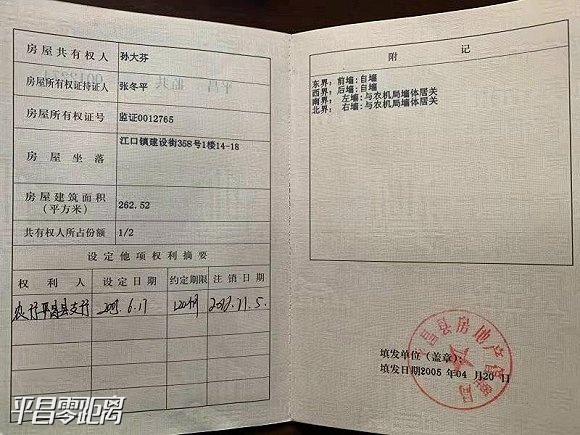 房屋共有权人 孙大芬
房屋所有权证持证人 张冬平
房屋所有权证号 监证0012765
房屋坐落 江口镇建设街358号1楼14-18
房屋建筑面积（平方米） 262.52
共有权人所占份额 1/2
设定他项权利摘要
权利人 设定日期 约定期限 注销日期
农行平昌县支行
附记
东界：前墙：自墙
西界：后墙：自墙
南界：左墙：与农机局墙体居关
北界：右墙：与农机局墙体居关
昌县房地产管理局
填发单位（盖章）：
填发日期2005 年04 月20 日
平昌零距离